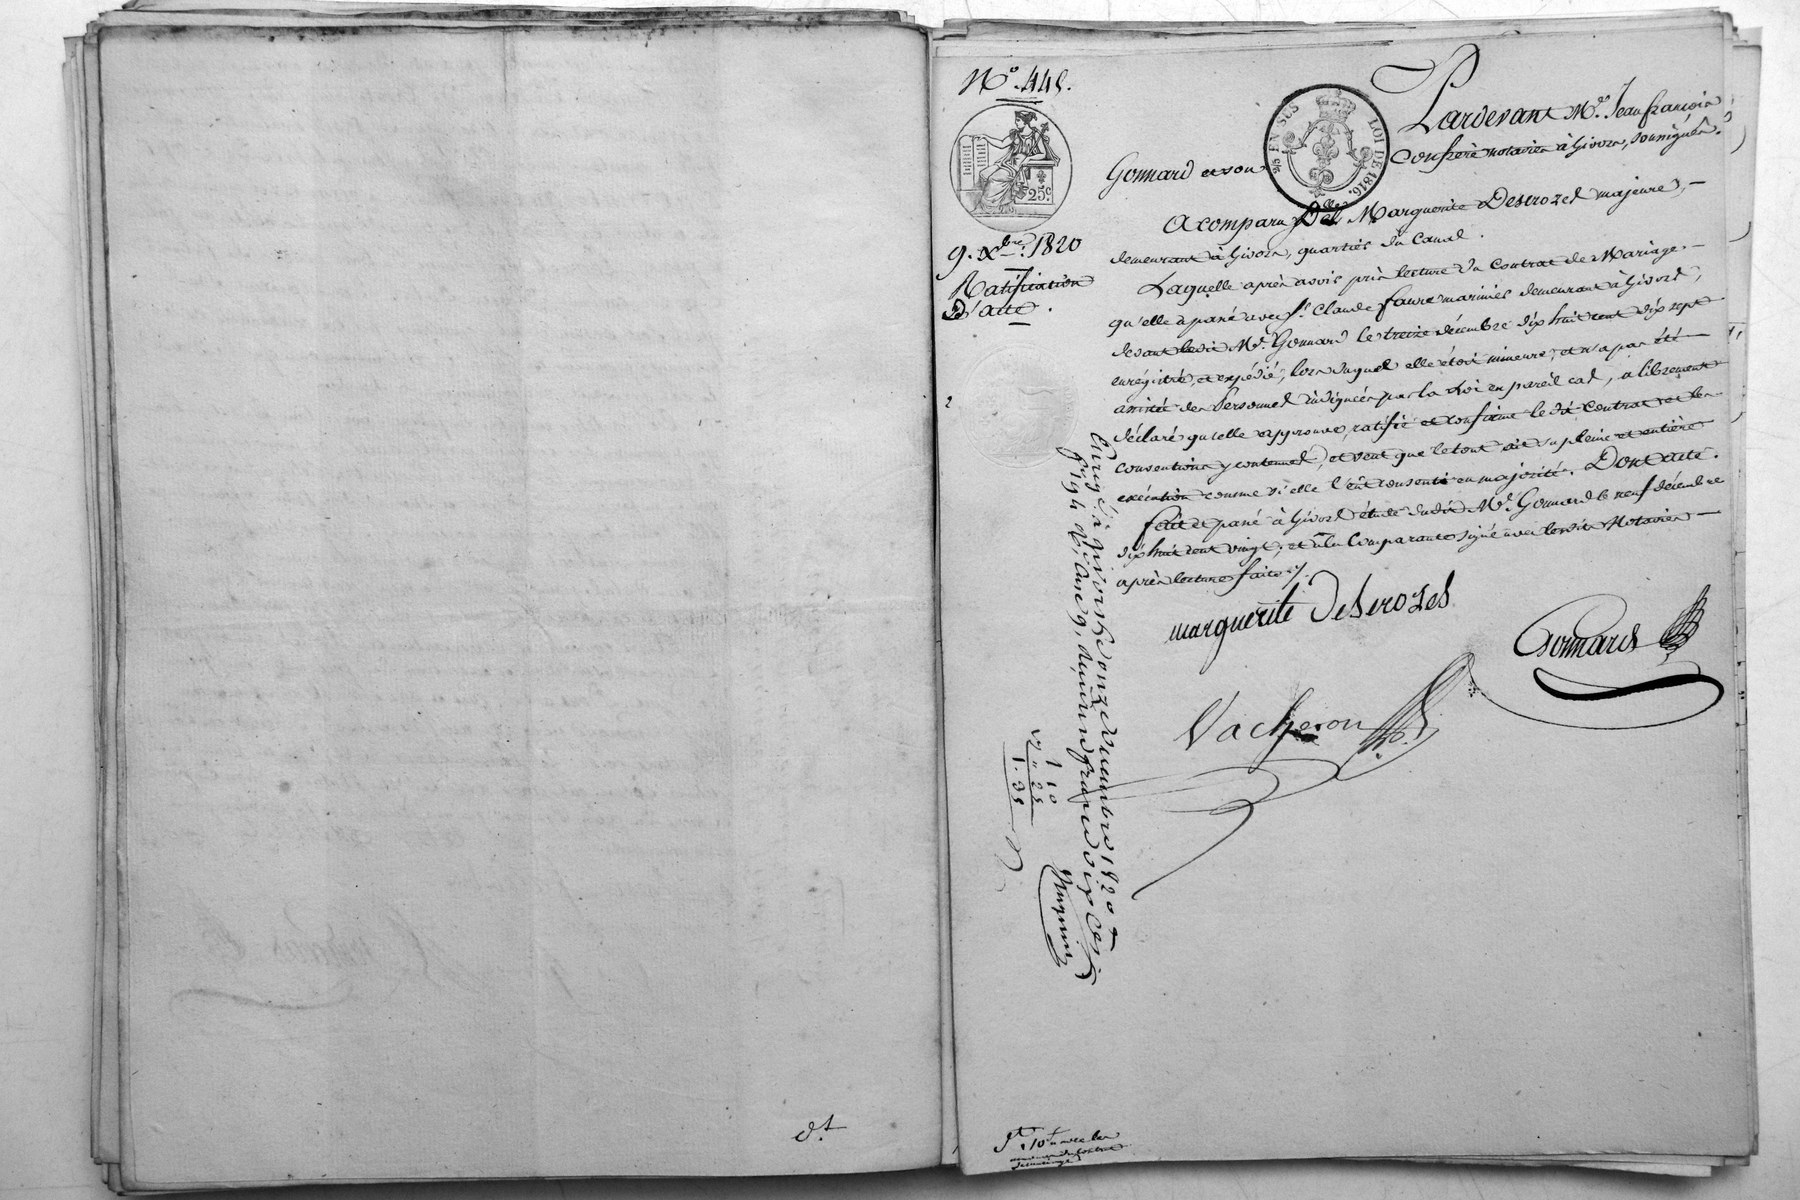 N.° 445.
25c.
5/c EN SUS LOI DE 1816.
9. Xbre. 1820
Ratification
D'acte.
Pardevant Me. Jean françois
Gonnard et son Confrère notaires à Givors, soussignés.
A comparu Dlle. Marguerite Deserozes majeure,
demeurant à Givors, quartier du Canal.
Laquelle après avoir pris lecture du contrat de Mariage
qu'elle a passé avec Sr. Claude faure marinier demeurant à Givors,
devant ledit Me. Gonnard le treize décembre dix huit cent dix sept
enrégistré, et expédié, lors duquel elle étoit mineure, et n'a pas été
assisté des Personnes indiquées par la Loi en pareil cas, a librement
déclaré qu'elle approuve, ratifie et confirme le dit Contrat et les
conventions y contenues, et veut que le tout ait sa pleine et entière
exécution comme si elle l'eût consenti en majorité. Dont acte.
fait et passé à Givors étude dudit Me. Gonnard le neuf décembre
dix huit cent vingt; et a la Comparante signé avec lesdits Notaires
après lecture faite ./.
marguerite Deserozes
Gonnard
Vacheron
Enregé à givors le onze décembre 1820
f° 194 Ro, Case 9, reçu un franc dix Ces
1 10
25
1. 35